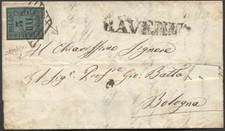 RAVENNA
Al Chiarissimo Signore
Il Sig.r Prof.re Gio. Batta
Bologna